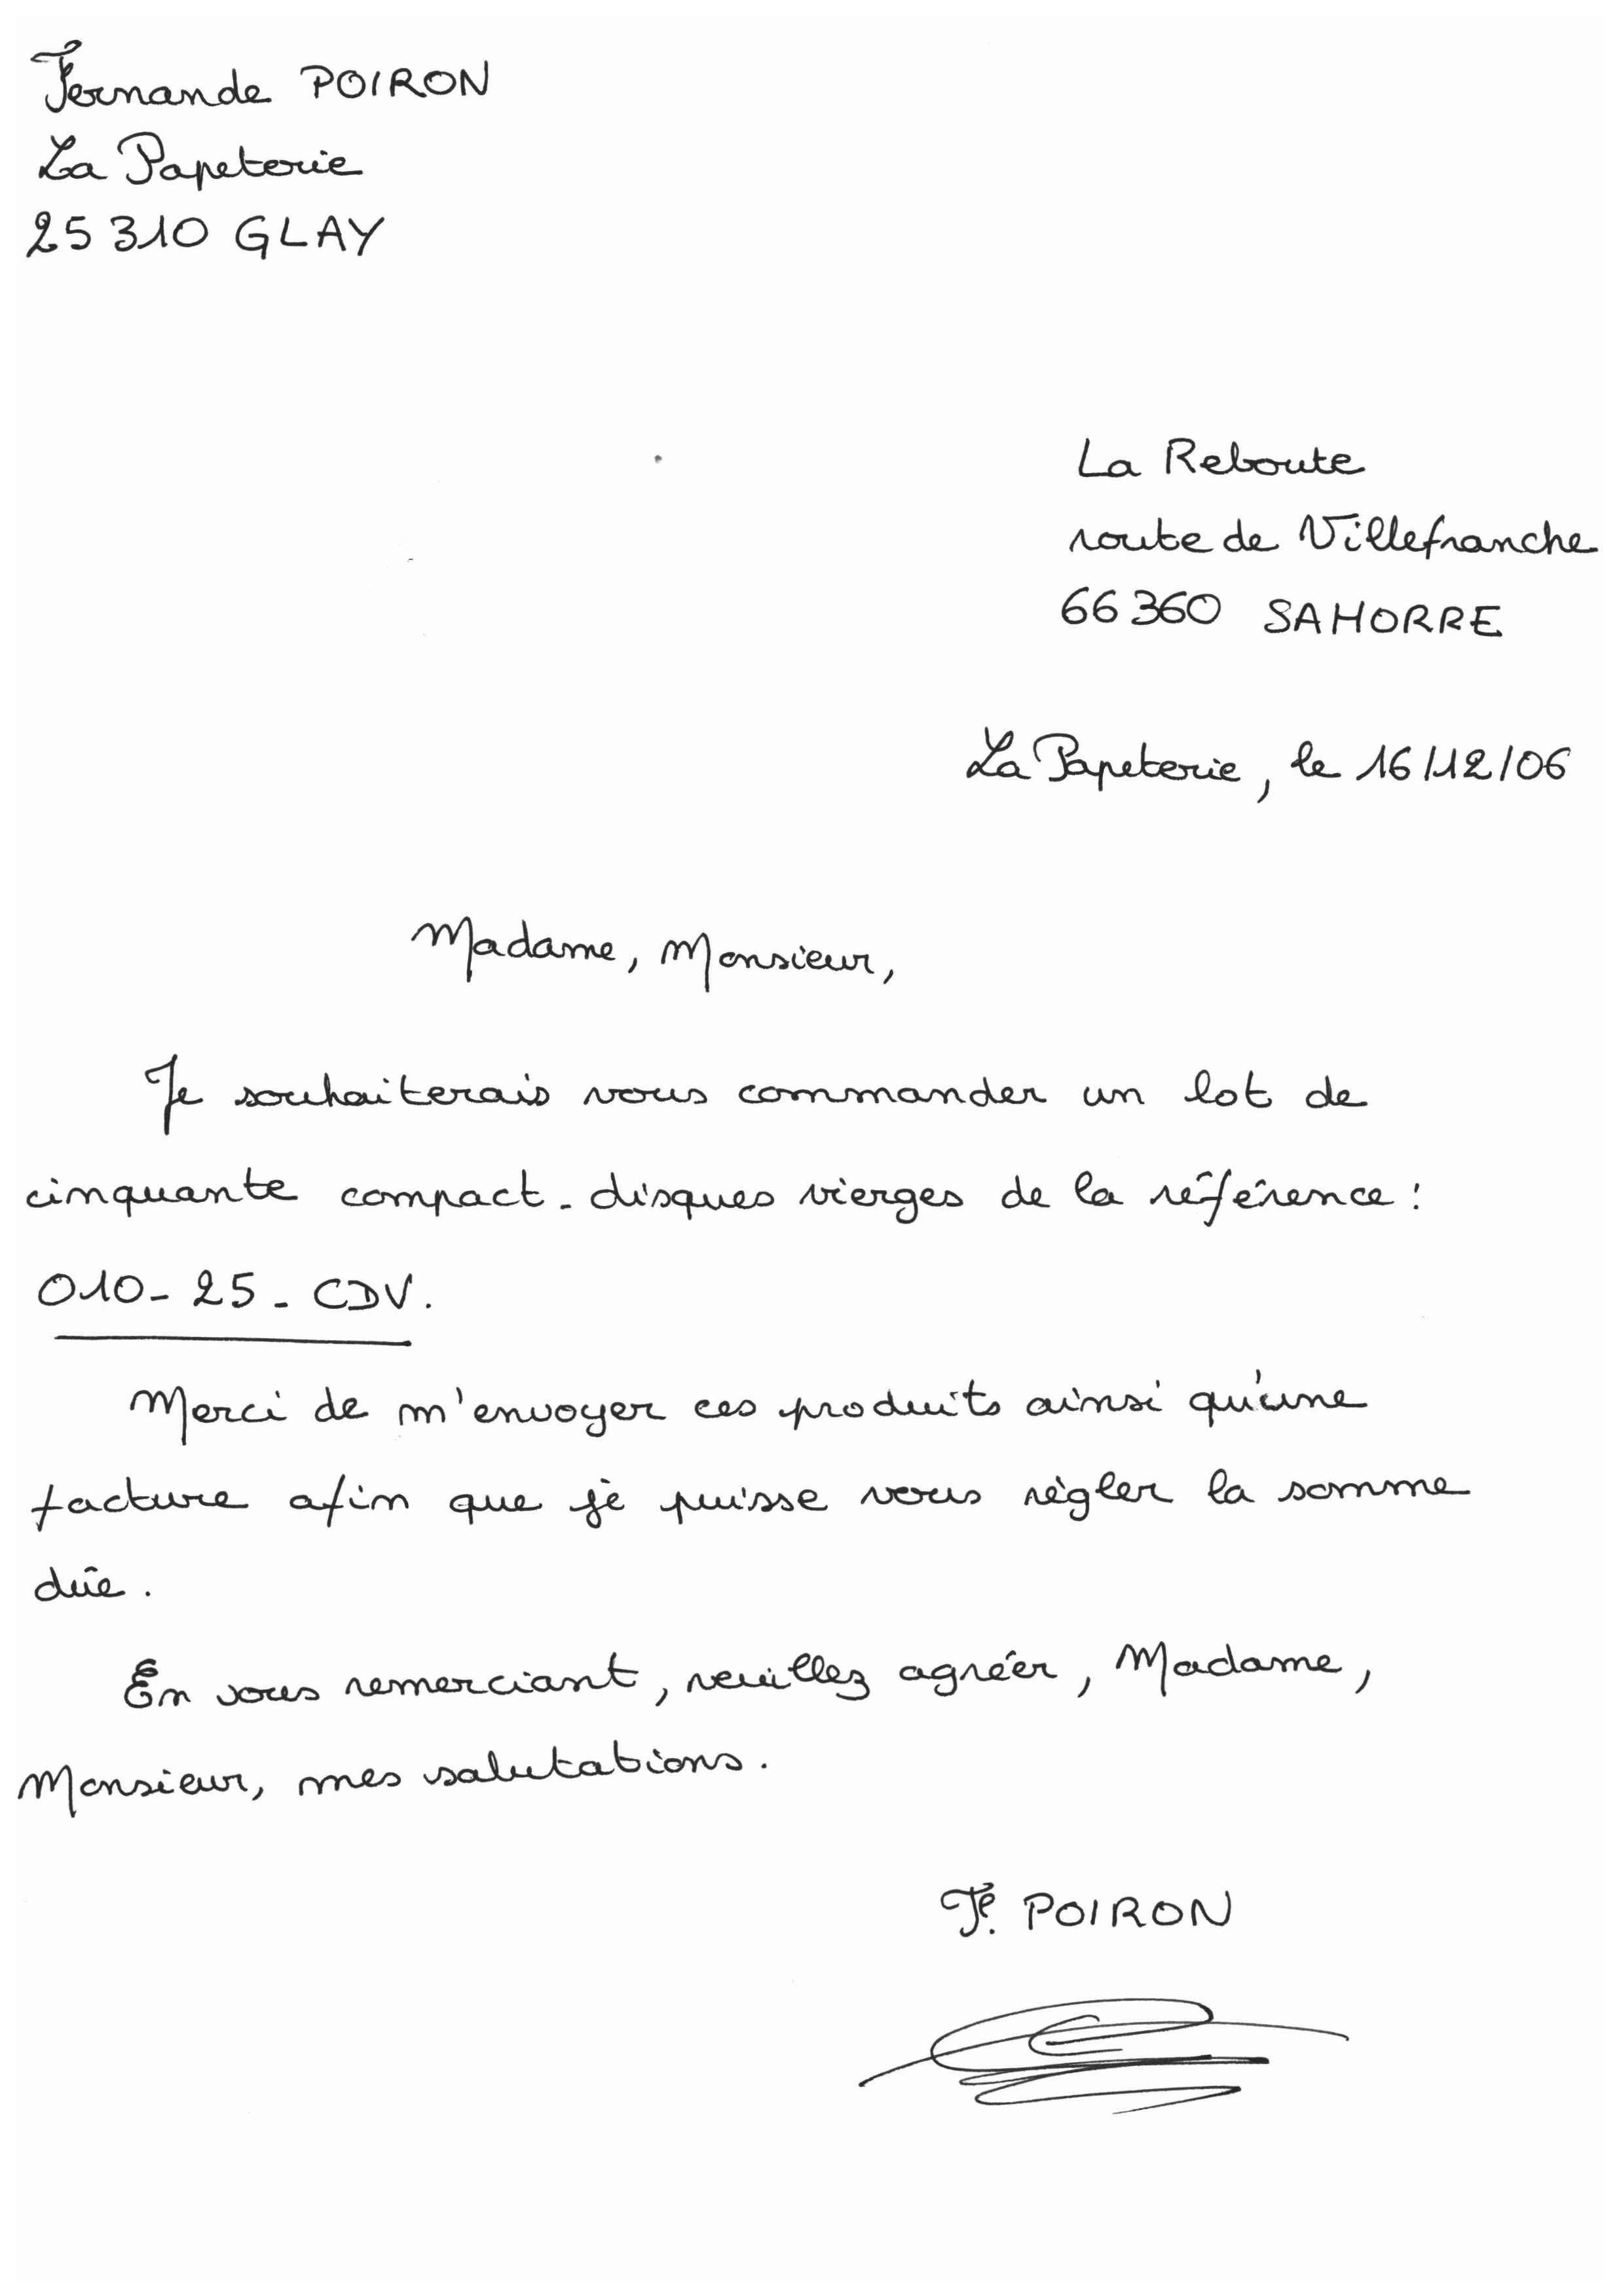 Fernande POIRON
La Papeterie
25310 GLAY
La Reboute
route de Villefranche
66360 SAHORRE
La Papeterie, le 16/12/06
Madame, Monsieur,
Je souhaiterais vous commander un lot de
cinquante compact-disques vierges de la référence :
010-25-CDV.
Merci de m'envoyer ces produits ainsi qu'une
facture afin que je puisse vous régler la somme
dûe.
En vous remerciant, veuillez agréer, Madame,
Monsieur, mes salutations.
Fe. POIRON